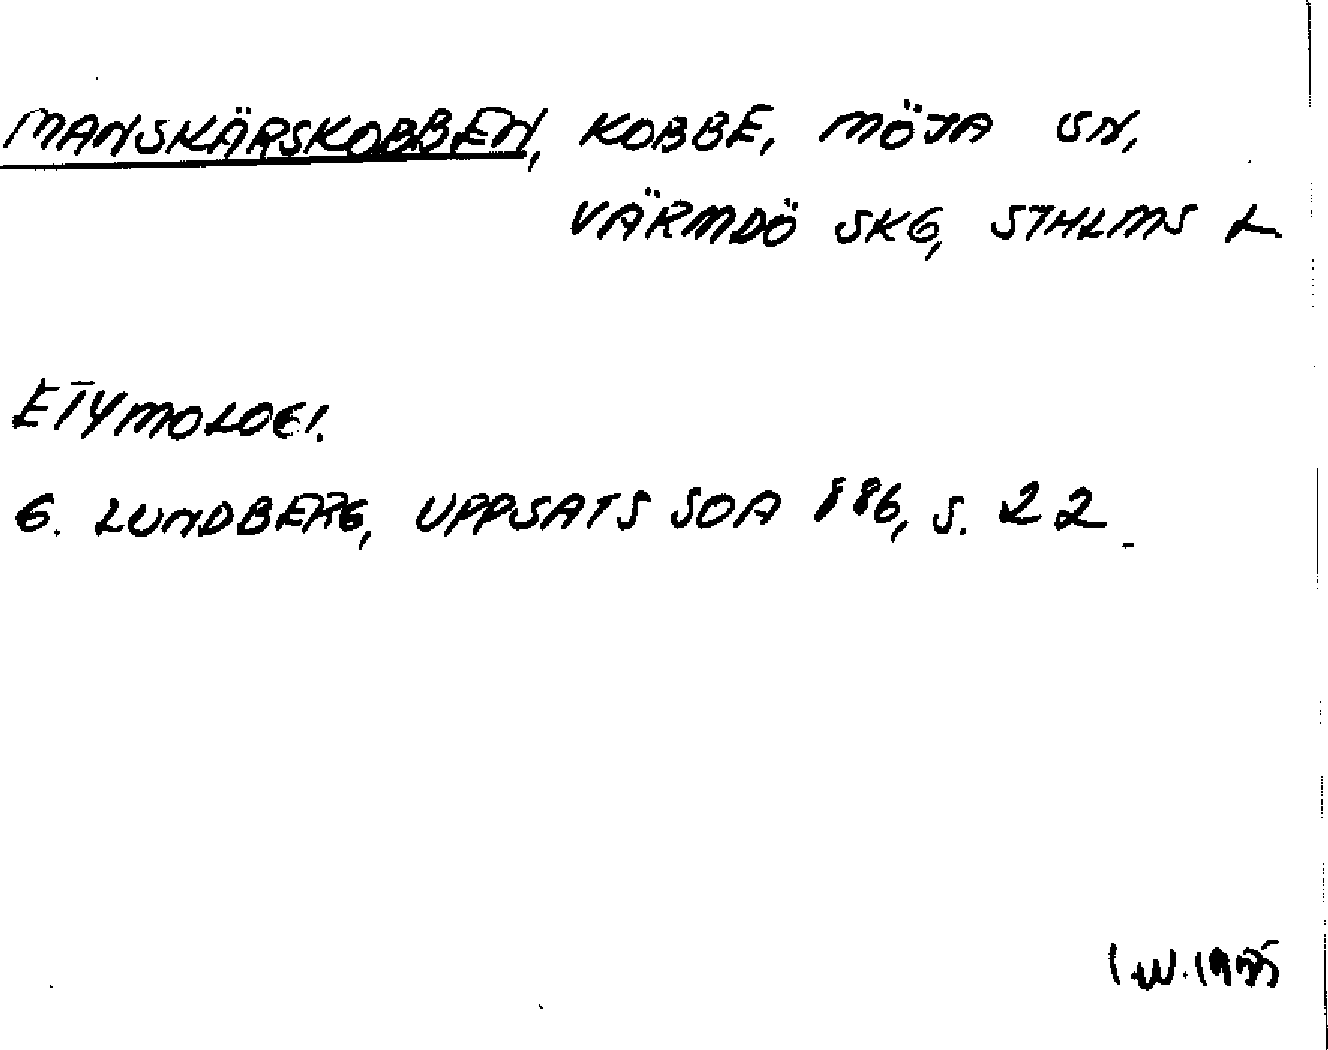 MANSKÄRSKOBBEN, KOBBE, MÖJA SN,
VÄRMDÖ SKG, STHLMS L
ETYMOLOGI.
G. LUNDBERG, UPPSATS SOA 886, S. 22